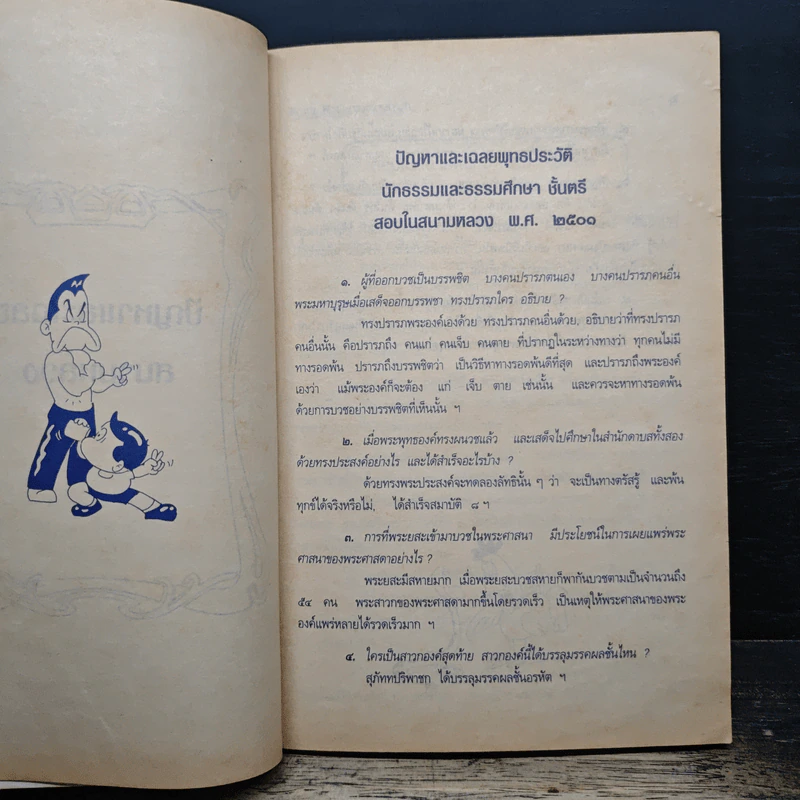 ปัญหาและเฉลยพุทธประวัติ
นักธรรมและธรรมศึกษา ชั้นตรี
สอบในสนามหลวง พ.ศ. ๒๕๐๑
๑. ผู้ที่ออกบวชเป็นบรรพชิต บางคนปรารภตนเอง บางคนปรารภคนอื่น
พระมหาบุรุษเมื่อเสด็จออกบรรพชา ทรงปรารภใคร อธิบาย ?
ทรงปรารภพระองค์เองด้วย ทรงปรารภคนอื่นด้วย, อธิบายว่าที่ทรงปรารภ
คนอื่นนั้น คือปรารภถึง คนแก่ คนเจ็บ คนตาย ที่ปรากฏในระหว่างทางว่า ทุกคนไม่มี
ทางรอดพ้น ปรารภถึงบรรพชิตว่า เป็นวิธีหาทางรอดพ้นดีที่สุด และปรารภถึงพระองค์
เองว่า แม้พระองค์ก็จะต้อง แก่ เจ็บ ตาย เช่นนั้น และควรจะหาทางรอดพ้น
ด้วยการบวชอย่างบรรพชิตที่เห็นนั้น ฯ
๒. เมื่อพระพุทธองค์ทรงผนวชแล้ว และเสด็จไปศึกษาในสำนักดาบสทั้งสอง
ด้วยทรงประสงค์อย่างไร และได้สำเร็จอะไรบ้าง ?
ด้วยทรงพระประสงค์จะทดลองลัทธินั้น ๆ ว่า จะเป็นทางตรัสรู้ และพ้น
ทุกข์ได้จริงหรือไม่, ได้สำเร็จสมาบัติ ๘ ฯ
๓. การที่พระยสะเข้ามาบวชในพระศาสนา มีประโยชน์ในการเผยแพร่พระ
ศาสนาของพระศาสดาอย่างไร ?
พระยสะมีสหายมาก เมื่อพระยสะบวชสหายก็พากันบวชตามเป็นจำนวนถึง
๕๔ คน พระสาวกของพระศาสดามากขึ้นโดยรวดเร็ว เป็นเหตุให้พระศาสนาของพระ
องค์แพร่หลายได้รวดเร็วมาก ฯ
๔. ใครเป็นสาวกองค์สุดท้าย สาวกองค์นี้ได้บรรลุมรรคผลชั้นไหน ?
สุภัททปริพาชก ได้บรรลุมรรคผลชั้นอรหัต ฯ